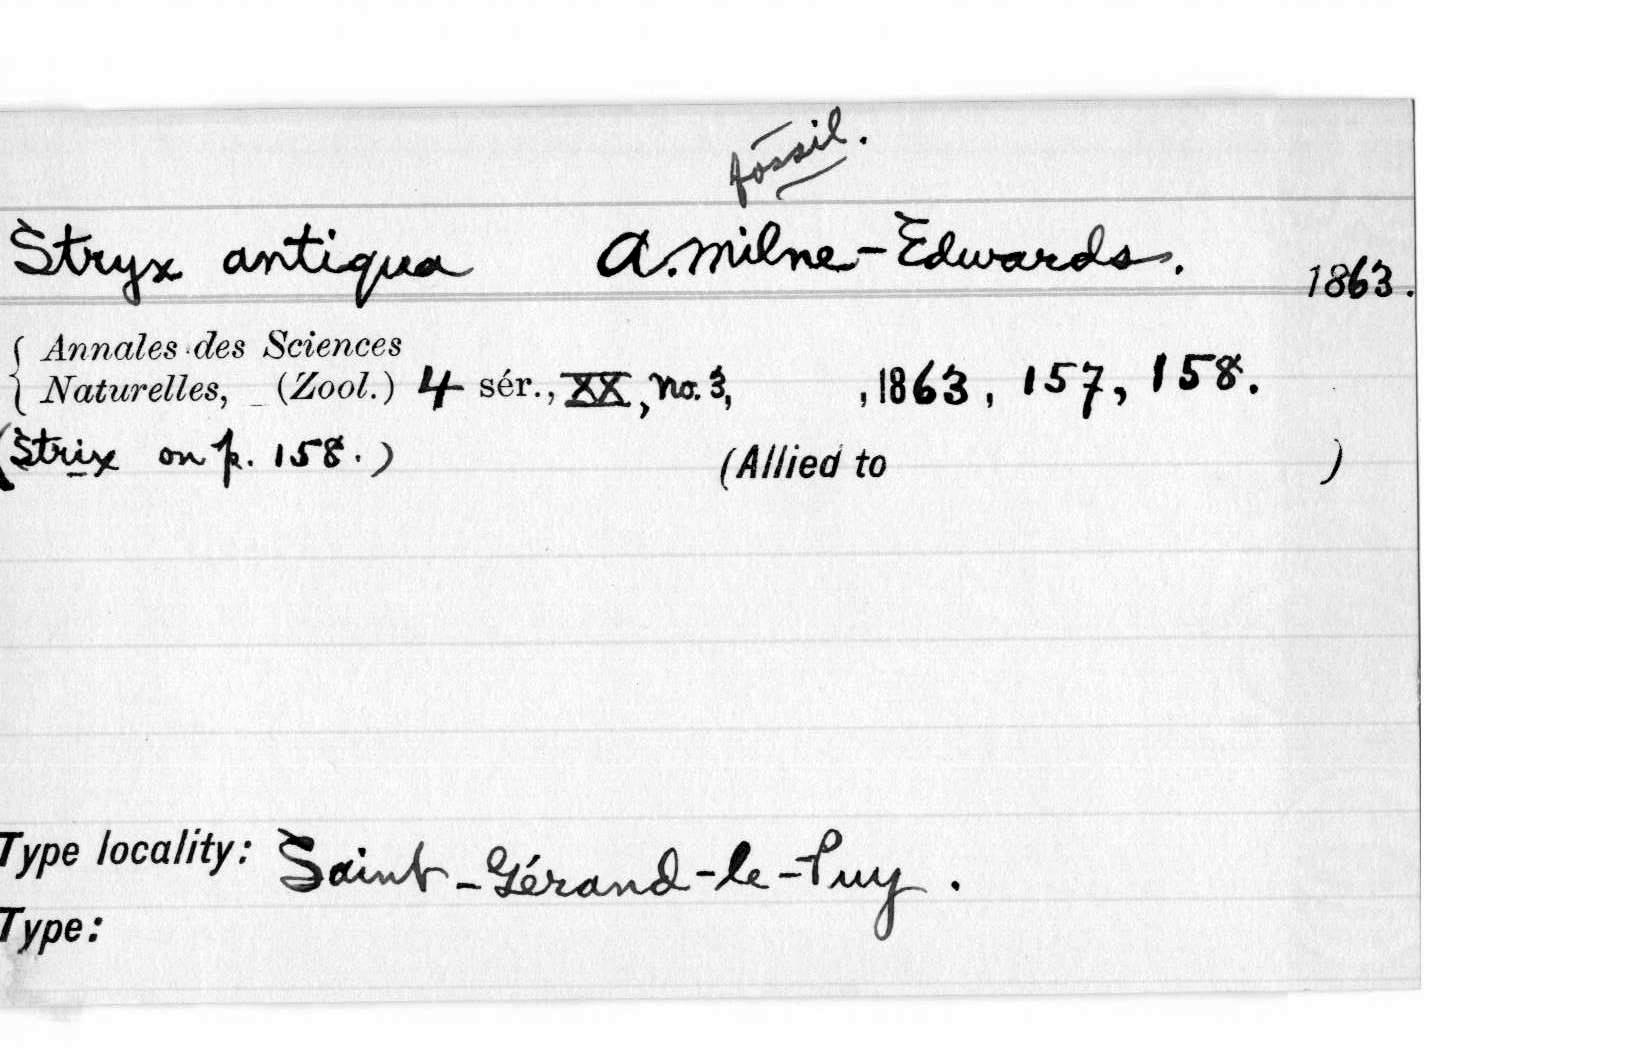 fossil.
Stryx antiqua A. Milne-Edwards. 1863.
{ Annales des Sciences
Naturelles, (Zool.) 4 sér., XX, no. 3, , 1863, 157, 158.
(Strix on p. 158.) (Allied to )
Type locality: Saint-Gérand-le-Puy.
Type: